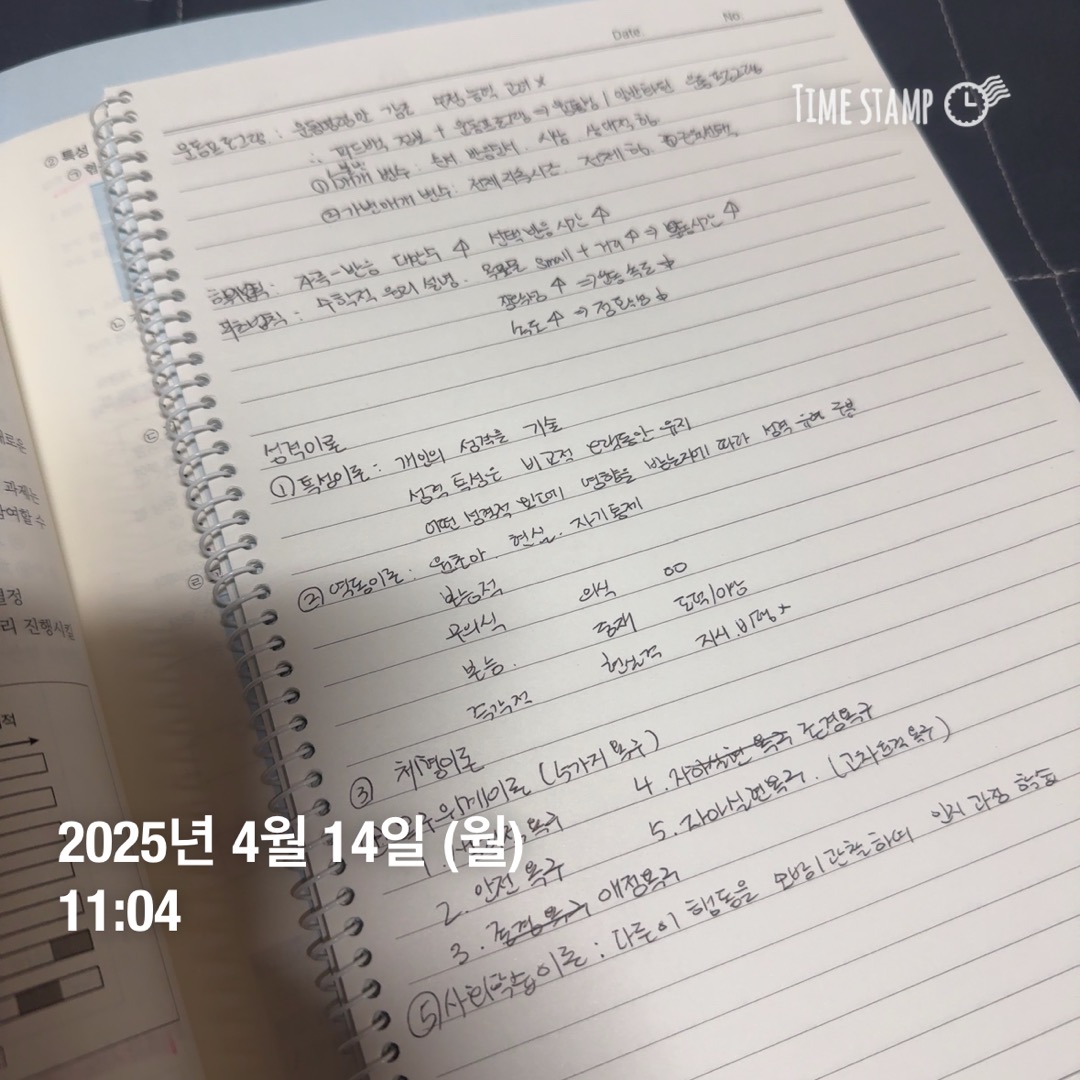 Date
No.
TIME STAMP
② 특성
운동프로그램 : 운동명령만 기본
∴ 피드백 정보 + 운동프로그램 ⇒ 일반화된 운동프로그램
매개 변수 : 순서
② 가변매개 변수 : 전체 지속시간. 전체 힘. 근육선택
힉의법칙 : 자극-반응 대안수 ↑ 선택반응시간 ↑
피츠법칙 : 수학적 원리 설명. 목표물 small + 거리 ↑ ⇒ 운동시간 ↑
정확성 ↑ ⇒ 운동 속도 ↓
속도 ↑ ⇒ 정확성 ↓
성격이론
① 특성이론 : 개인의 성격을 기술
성격 특성은 비교적 오랫동안 유지
어떤 성격적 영향을 받는지에 따라 성격 유형 구분
② 역동이론 : 원초아. 현실. 자기통제
본능적 의식
무의식 도덕/이상
본능. 현실적
③ 체형이론
욕구위계이론 (5가지 욕구)
4. 자아실현 욕구 존경욕구
욕구
5. 자아실현욕구. (고차원적 욕구)
2. 안전 욕구
3. 존경 욕구 애정욕구
⑤ 사회학습이론 : 다른이 행동을 모방/관찰하며 인지 과정 학습
새로운
과제는
참여할 수
결정
리 진행시킬
적
2025년 4월 14일 (월)
11:04